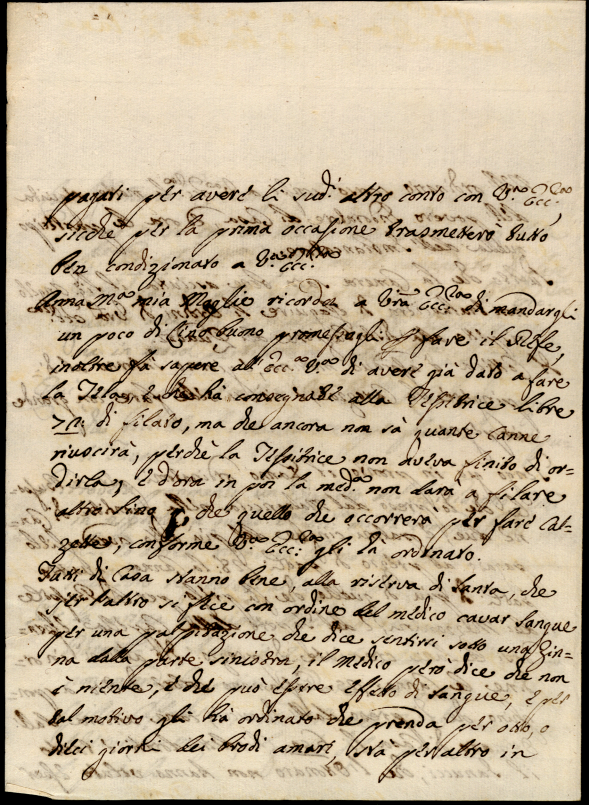 pagati per avere li sud.i altro conto con V.ra Ecc.za,
sicche per la prima occasione trasmetterò tutto
ben condizionato a V.ra Ecc.za.
Anna M.a mia Moglie ricorda a Vra Ecc.za di mandargli
un poco di Lino buono per fare il
inoltre fà sapere all' Ecc.za V.ra di avere già dato a fare
la Tela, e che hà consegnate alla Tessitrice libre
di filato, ma che ancora non sà quante Canne
riuscirà, perche la Tessitrice non aveva finito di or=
dirla, e d'ora in poi la med.a non darà a filare
altro Lino che quello che occorrerà per fare Cal=
zette, conforme V.ra Ecc.za gli hà ordinato.
Tutti di Casa stanno bene, alla riserva di Santa, che
per l'altro si fece con ordine del medico cavar sangue
per una palpitazione che dice sentirsi sotto una Zin=
na dalla parte sinistra, il medico però dice che non
è niente, e che può essere effetto di sangue, e per
tal motivo gli hà ordinato che prenda per otto, o
dieci giorni dei brodi amari, stà per altro in